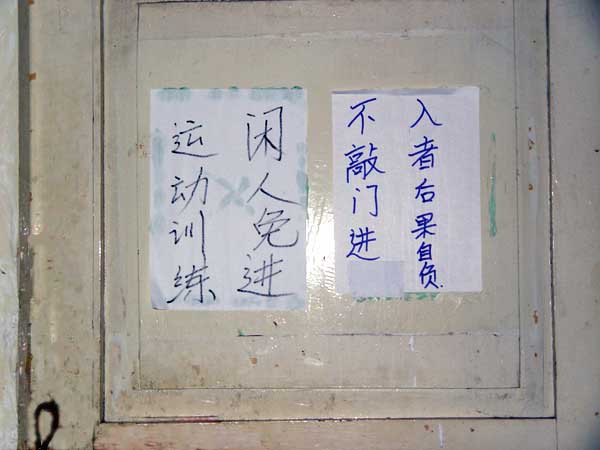 运动训练
闲人免进
不敲门进
入者后果自负